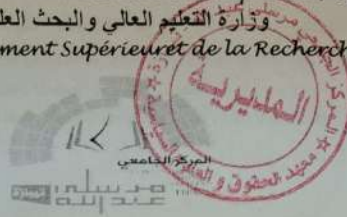 وزارة التعليم العالي والبحث العل
ment Supérieur et de la Recherch
المديرية
معهد الحقوق و العلوم السياسية
المركز الجامعي
مرسلي
عبد الله